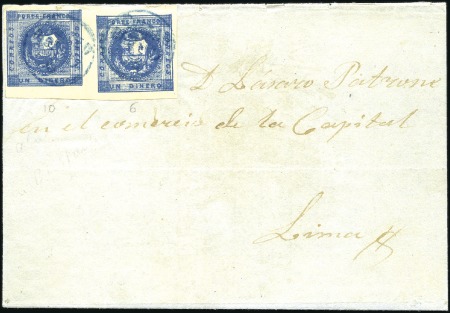 PORTE FRANCO PORTE FRANCO
CORREOS CORREOS
UN DINERO UN DINERO
10 6
D. Lázaro Patrone
en el comercio de la Capital
Lima